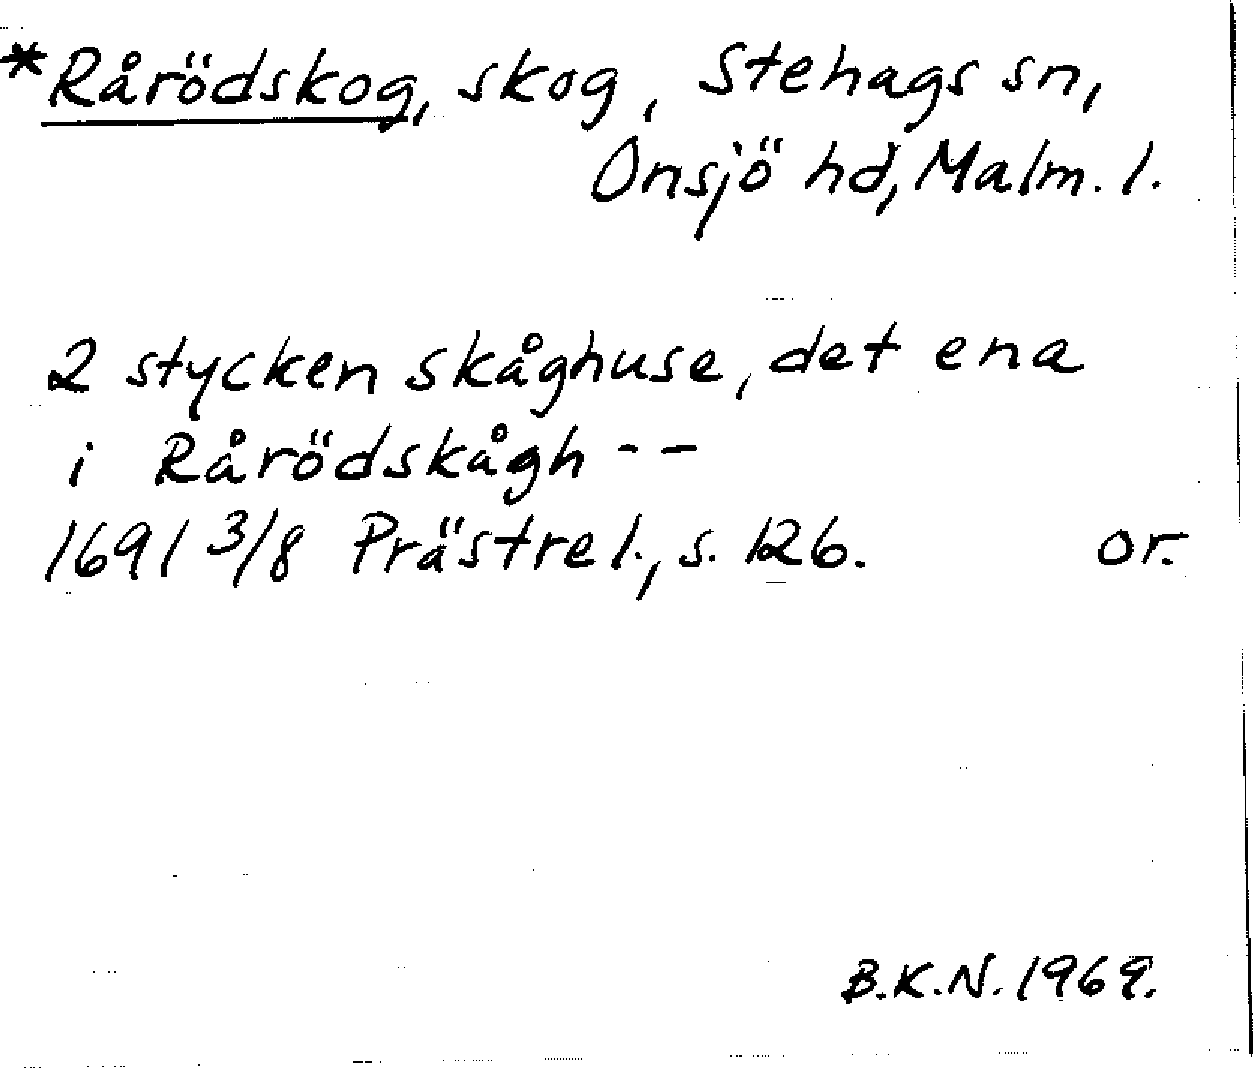 *Rårödskog, skog, Stehags sn,
Onsjö hd, Malm. l.
2 stycken skåghuse, det ena
i Rårödskågh --
1691 3/8 Prästrel., s. 126. or.
B.K.N. 1969.